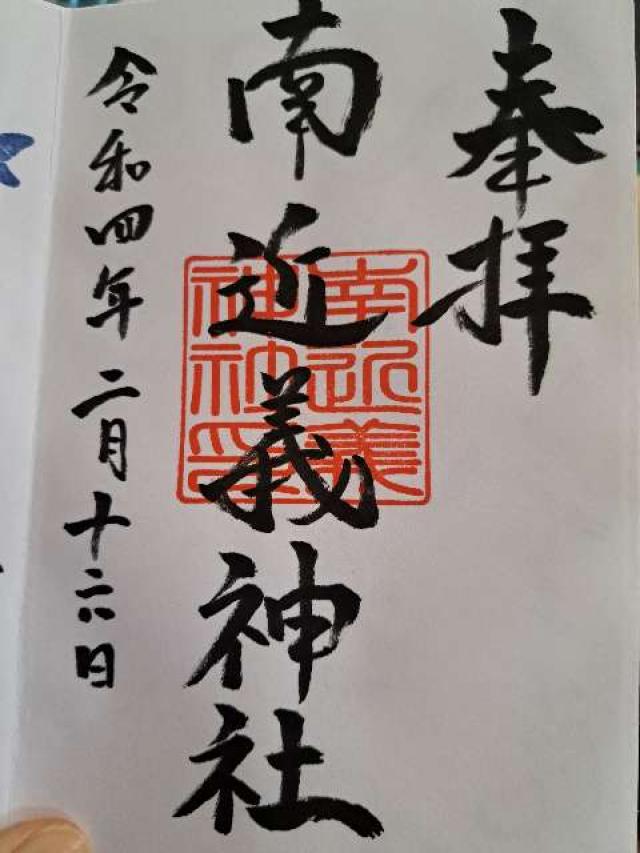 奉拝
南近義神社
南近義
神社印
令和四年二月十六日